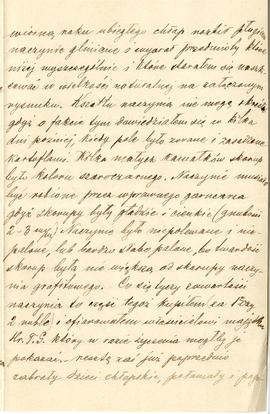 wiosną roku ubiegłego chłop rozbił pługiem
naczynie gliniane i wyorał przedmioty które
niżej wyszczególnię i które starałem się narys-
ować w wielkości naturalnej na załączonym
rysunku. Kształtu naczynia nie mogę określić
gdyż o fakcie tym dowiedziałem się w kilka
dni później kiedy pole było zorane i zasadzone
kartoflami. Kilka małych kawałków skorup
było koloru szaroczarnego. Naczynie musiało
być robione przez wprawnego garncarza
gdyż skorupy były gładkie i cienkie (grubość
2-3 m/m). Naczynie było niepolewane i nie-
palone, lub bardzo słabo palone, bo twardość
skorup była nie większa od skorupy naczy-
nia grafitowego. Co się tyczy zawartości
naczynia to część tegoż kupiłem za
2 ruble i ofiarowałem właścicielowi majątku
Hr. T. G. który w razie życzenia mógłby je
pokazać. - resztę zaś już poprzednio
zabrały dzieci chłopskie, połamały i